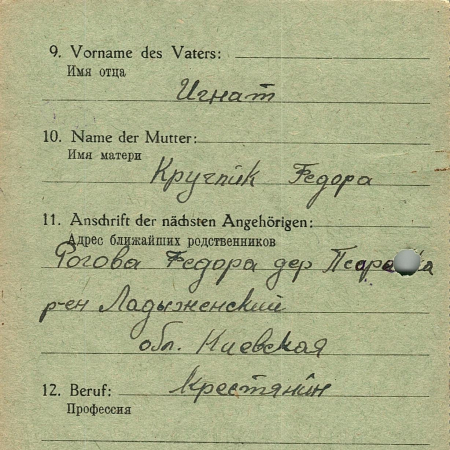 9. Vorname des Vaters:
Имя отца
Игнат
10. Name der Mutter:
Имя матери
Кругпiк Федора
11. Anschrift der nächsten Angehörigen:
Адрес ближайших родственников
Рогова Федора дер
р-ен Ладыженский
обл. Киевская
12. Beruf: Крестянiн
Профессия